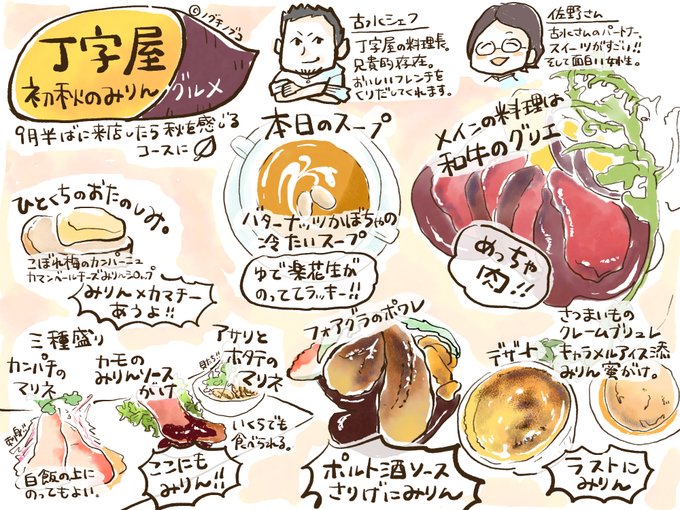 ©ノグチノブコ
丁字屋
初秋のみりん
グルメ
9月半ばに来店したら秋を感じる
コースに
古水シェフ
丁字屋の料理長。
兄貴的存在。
おいしいフレンチを
くりだしてくれます。
佐野さん
古水さんのパートナー。
スイーツがすごい!!
そして面白い女性。
ひとくちのおたのしみ。
こぼれ梅のカンパーニュ
カマンベールチーズみりんシロップ
みりん×カマチー
あうよ!!
本日のスープ
バターナッツかぼちゃの
冷たいスープ
ゆで楽花生が
のっててラッキー!!
メインの料理は
和牛のグリエ
めっちゃ
肉!!
三種盛り
カンパチの
マリネ
白飯の上に
のってもよい。
カモの
みりんソース
がけ
ここにも
みりん!!
アサリと
ホタテの
マリネ
いくらでも
食べられる。
フォアグラのポワレ
ポルト酒ソース
さりげにみりん
デザート
さつまいもの
クレームブリュレ
キャラメルアイス添
みりん蜜がけ。
ラストに
みりん